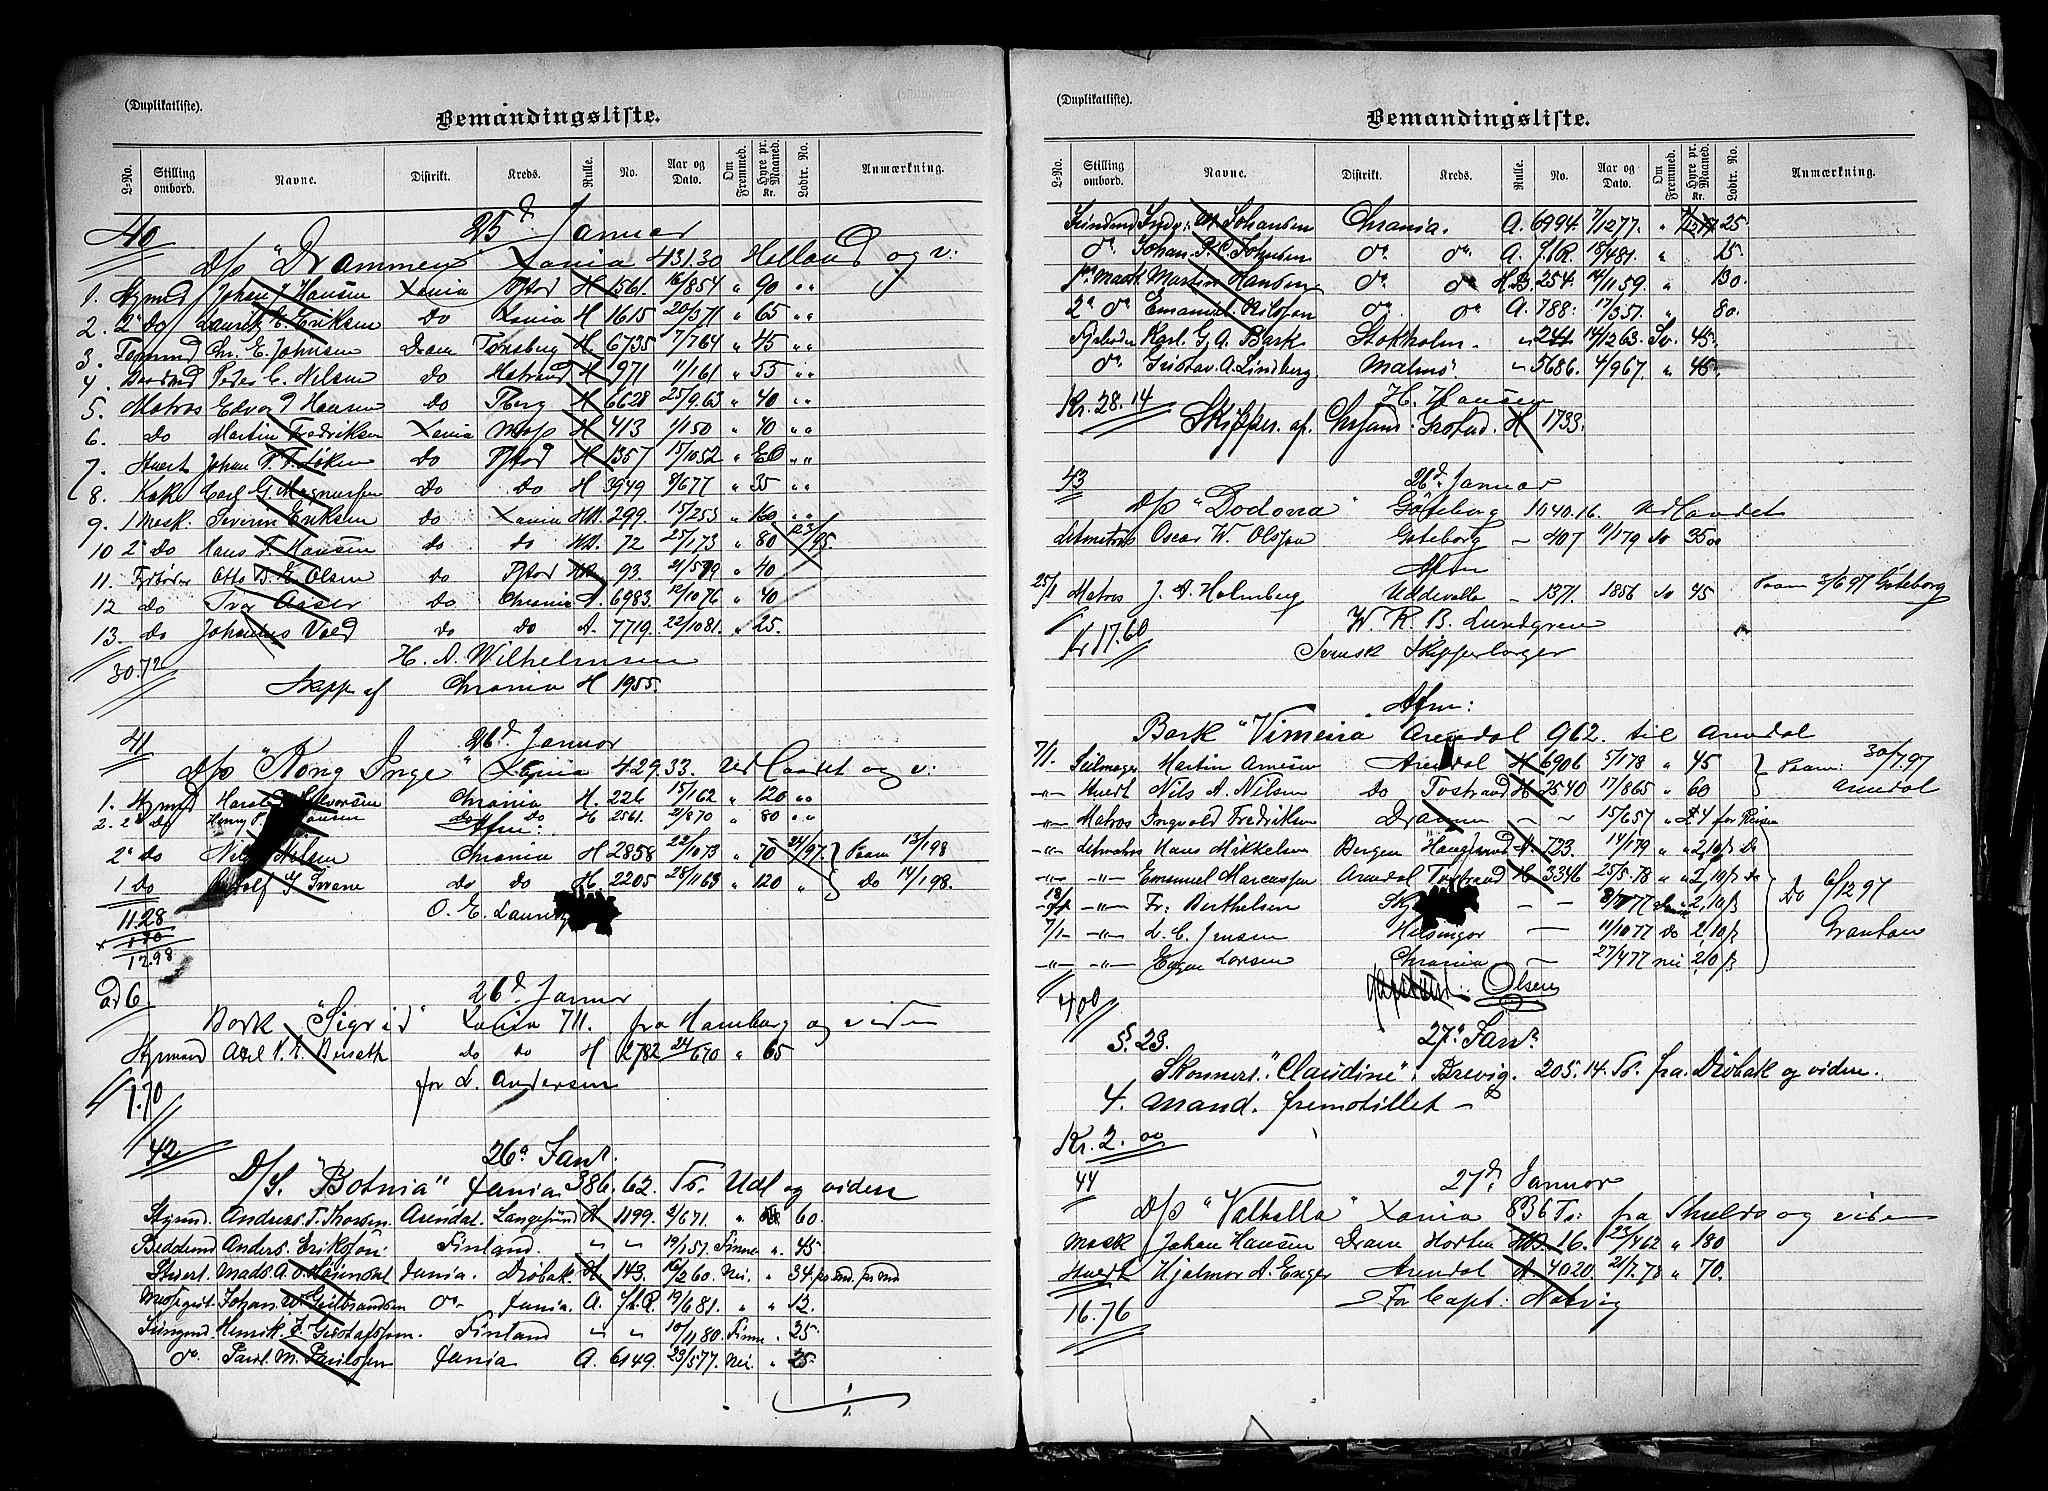 (Duplikatliste).
Bemandingsliste.
L-No. Stilling ombord. Navne. Distrikt. Kreds. Rulle. No. Aar og Dato. Om Fremmed. Hyre pr. Maaned. Kr. Lodtr. No. Anmærkning.
40 25d Januar
D/s "Drammen" Xania 431.30 Holland og v:
1. Stymd Johan J. Hansen Xania Fstad H 1561. 16/8 54 " 90 " "
2. 2' Do Lauritz C. Eriksen Do Xania H 1615 20/3 71 " 65 " "
3. Tømmd Chr. E. Johnsen Dram Tønsberg H. 6735 7/7 64 " 45 " "
4. Baadsmd Peder C. Nilsen Do Hstrand H 1971 11/1 61 " 55 " "
5. Matros Edvard Hansen Do Tberg H 6628 25/9 63 " 40 " "
6. Do Martin Fredriksen Xania Moss H 413 1/1 50 " 40 " "
7. Stuert Johan Løken Do Fstad H 1357 15/10 52 " 60 " "
8. Kok Carl G. Magnussen Do Do H 3949 8/6 77 " 35 " "
9. 1 Mask. Severin Eriksen Do Xania HB. 299. 15/2 53 " 160 " "
10 2' Do Hans F. Hansen Do Do HB. 72 25/1 73 " 80 123/95.
11. Fyrbøder Otto B. E. Olsen Do Fstad HB. 93. 21/5 79 " 40
12 Do Ivar Asser Do Chrania A. 6983. 12/10 76 " 40
13. Do Johannes Vold Do Do A. 7719. 22/10 81. " 25.
H. A. Wilhelmsen
30.72 Skipp af Chrania H 1955.
41 26d Januar
D/s "Kong Inge" Xania 429.33. Udlandet og v:
1. Stymd Harald Halvorsen Chrania H. 226 15/1 62 " 120 " "
2. 2' Do Henry Hansen Do Do H 2561. 2/8 70 " 80 " "
Afm:
2' Do Nils Nilsen Chrania H 2858 22/10 73 " 70 24/97. Paam 13/1 98
1 Do Rudolf G Svane Do Do H. 2205 28/11 63 " 120 " Do 14/1 98.
O. E. Lauritz
11.28
+ 1.70
12.98
ad 6 26d Januar
Bark "Sigrid" Xania 711. fra Hamburg og viden
Styrmand Axel Do Do H 2782 24/6 70 " 65
for L. Andersen
1.70
42. 26d Janr.
D/S. "Botnia" Xania. 386.62. Ts. Udl og videre
Styrmd. Andreas T. Thorsen Arendal. Langesund H 1199. 2/6 71. " 60.
Bedstmd Anders. Eriksson Finland. " " 19/1 51. Finne " 45
Stuert. Mads A. O. Xania. Drøbak. H. 143. 16/2 60. Nei. " 34
Messegut. Johan W. Gulbrandsen do- Xania. A. 19/6 81. " " 12.
Fyringmd. Henrik J. Gustafsson. Finland " " 10/11 80. Finne " 25.
do. Paul M. Paulsen Xania A. 6149. 23/5 77. Nei. " 25.
1.
(Duplikatliste).
Bemandingsliste.
L-No. Stilling ombord. Navne. Distrikt. Kreds. Rulle. No. Aar og Dato. Om Fremmed. Hyre pr. Maaned. Kr. Lodtr. No. Anmærkning.
Johansen Chrania. A. 6994. 7/12 77. " 25.
do Johan Johnsen do do A. 18/4 81. " 15.
1ste Mask. Martin Hansen do do HB. 254. 14/11 59. " 130.
2d do Emanuel Nilsson do. do A. 788. 17/3 57. " 80.
Fyrbøder Karl. G. A. Bark Stokholm. " 244 14/12 63. Sv. 45.
do Gustav. A. Lindberg. Malmö. " 5686. 4/9 67. " 45.
Kr. 28.14 H. Hansen
Skipper. af. Chrsand. Grstad. H 1733.
43 26d Januar
D/s "Dodona" Göteborg 1040.16. Udlandet
Letmatros Oscar W. Olsson Göteborg - 407 11/1 79 Sv 35 00
Afm
25/1 Matros J. A. Holmberg Uddevalla - 1371. 1856 Sv 45 Paam 3/6 97 Göteborg
W. R. B. Lundgren
Kr 17.60 Svensk Skipperborger
Afm:
Bark "Vimeira" Arendal 962. til Arendal
7/1. Seilmager Martin Arnesen Arendal H 6906 5/1 78 " 45 Paam: 30/7.97
-"- Stuert Nils A. Nilsen Do Tvstrand H 2540 17/8 65 " 60 Arendal
-"- Matros Ingvald Fredriksen Drammen - - 15/6 57 " £4 for Reisen
-"- Letmatros Hans Mikkelsen Bergen Haugesund A. 723. 14/1 79 " 2,10/ß Do
-"- -"- Emanuel Marcussen Arendal Tvstrand H. 3346 25/5.78 " 2,10/ß Do
-"- Fr. Berthelsen - - 77 2,10/ß Do 6/12 97
7/1- -"- L. C. Jensen Helsingør - 11/10 77 Do 2,10/ß Granton
-"- -"- Eugen Larsen Chrania - 27/4 77 nei 2,0/ß
4.00 Olsen
§. 23. 27d Janr
Skonnert. "Claudine". Brevig. 205.14. Ts. fra. Drøbak og videre.
4. Mand. fremstillet -
Kr. 2.00
44 27d Januar
D/s "Valhalla" Xania 836 Ts: fra Shields og viden
Mask Johan Hansen Dram Horten HB. 16. 23/4 62 " 180
Stuert Hjalmar A. Enger Arendal A. 4020. 21/7.78 " 70.
For Capt: Nalvig
16.76